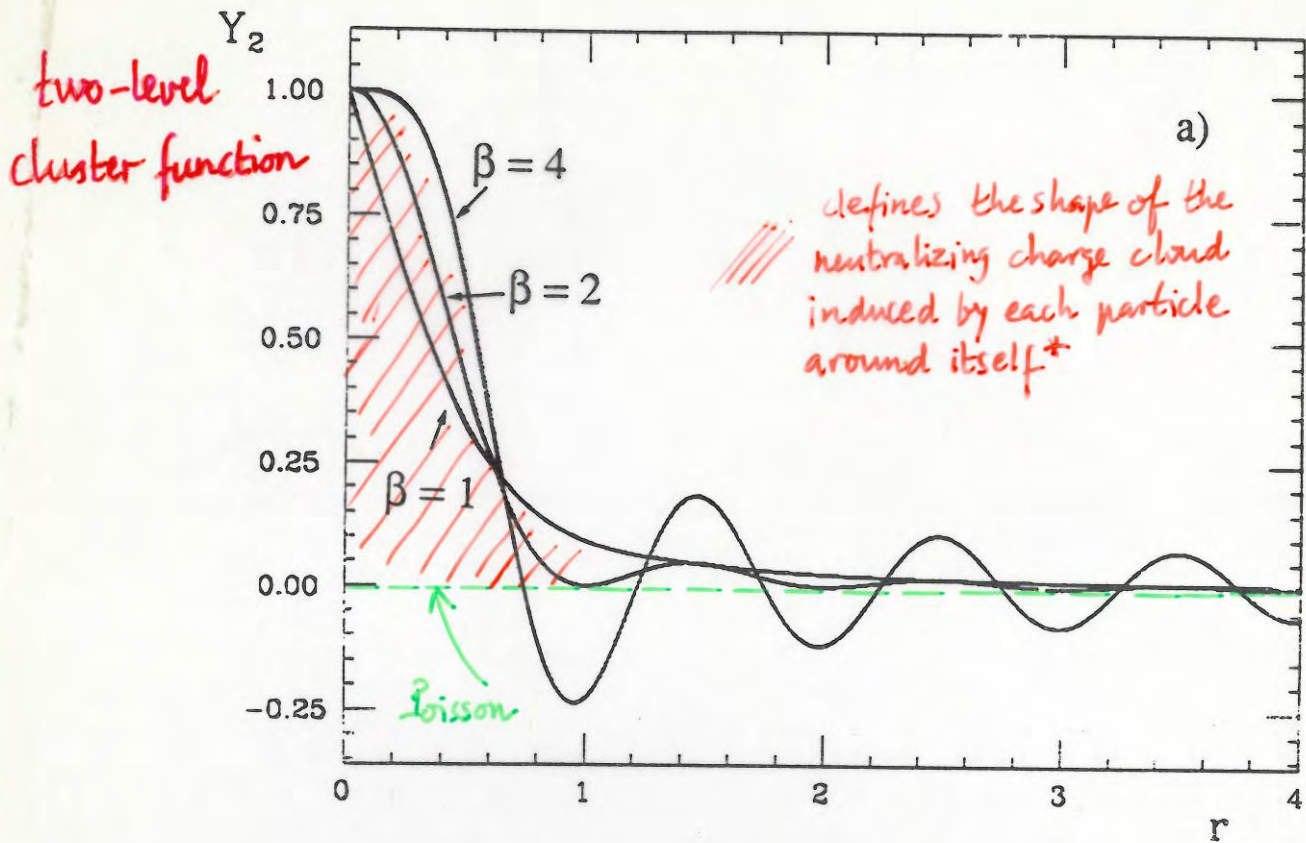 Y₂
two-level
cluster function
1.00
0.75
0.50
0.25
0.00
-0.25
a)
β = 4
β = 2
β = 1
defines the shape of the
neutralizing charge cloud
induced by each particle
around itself*
Poisson
0 1 2 3 4
r